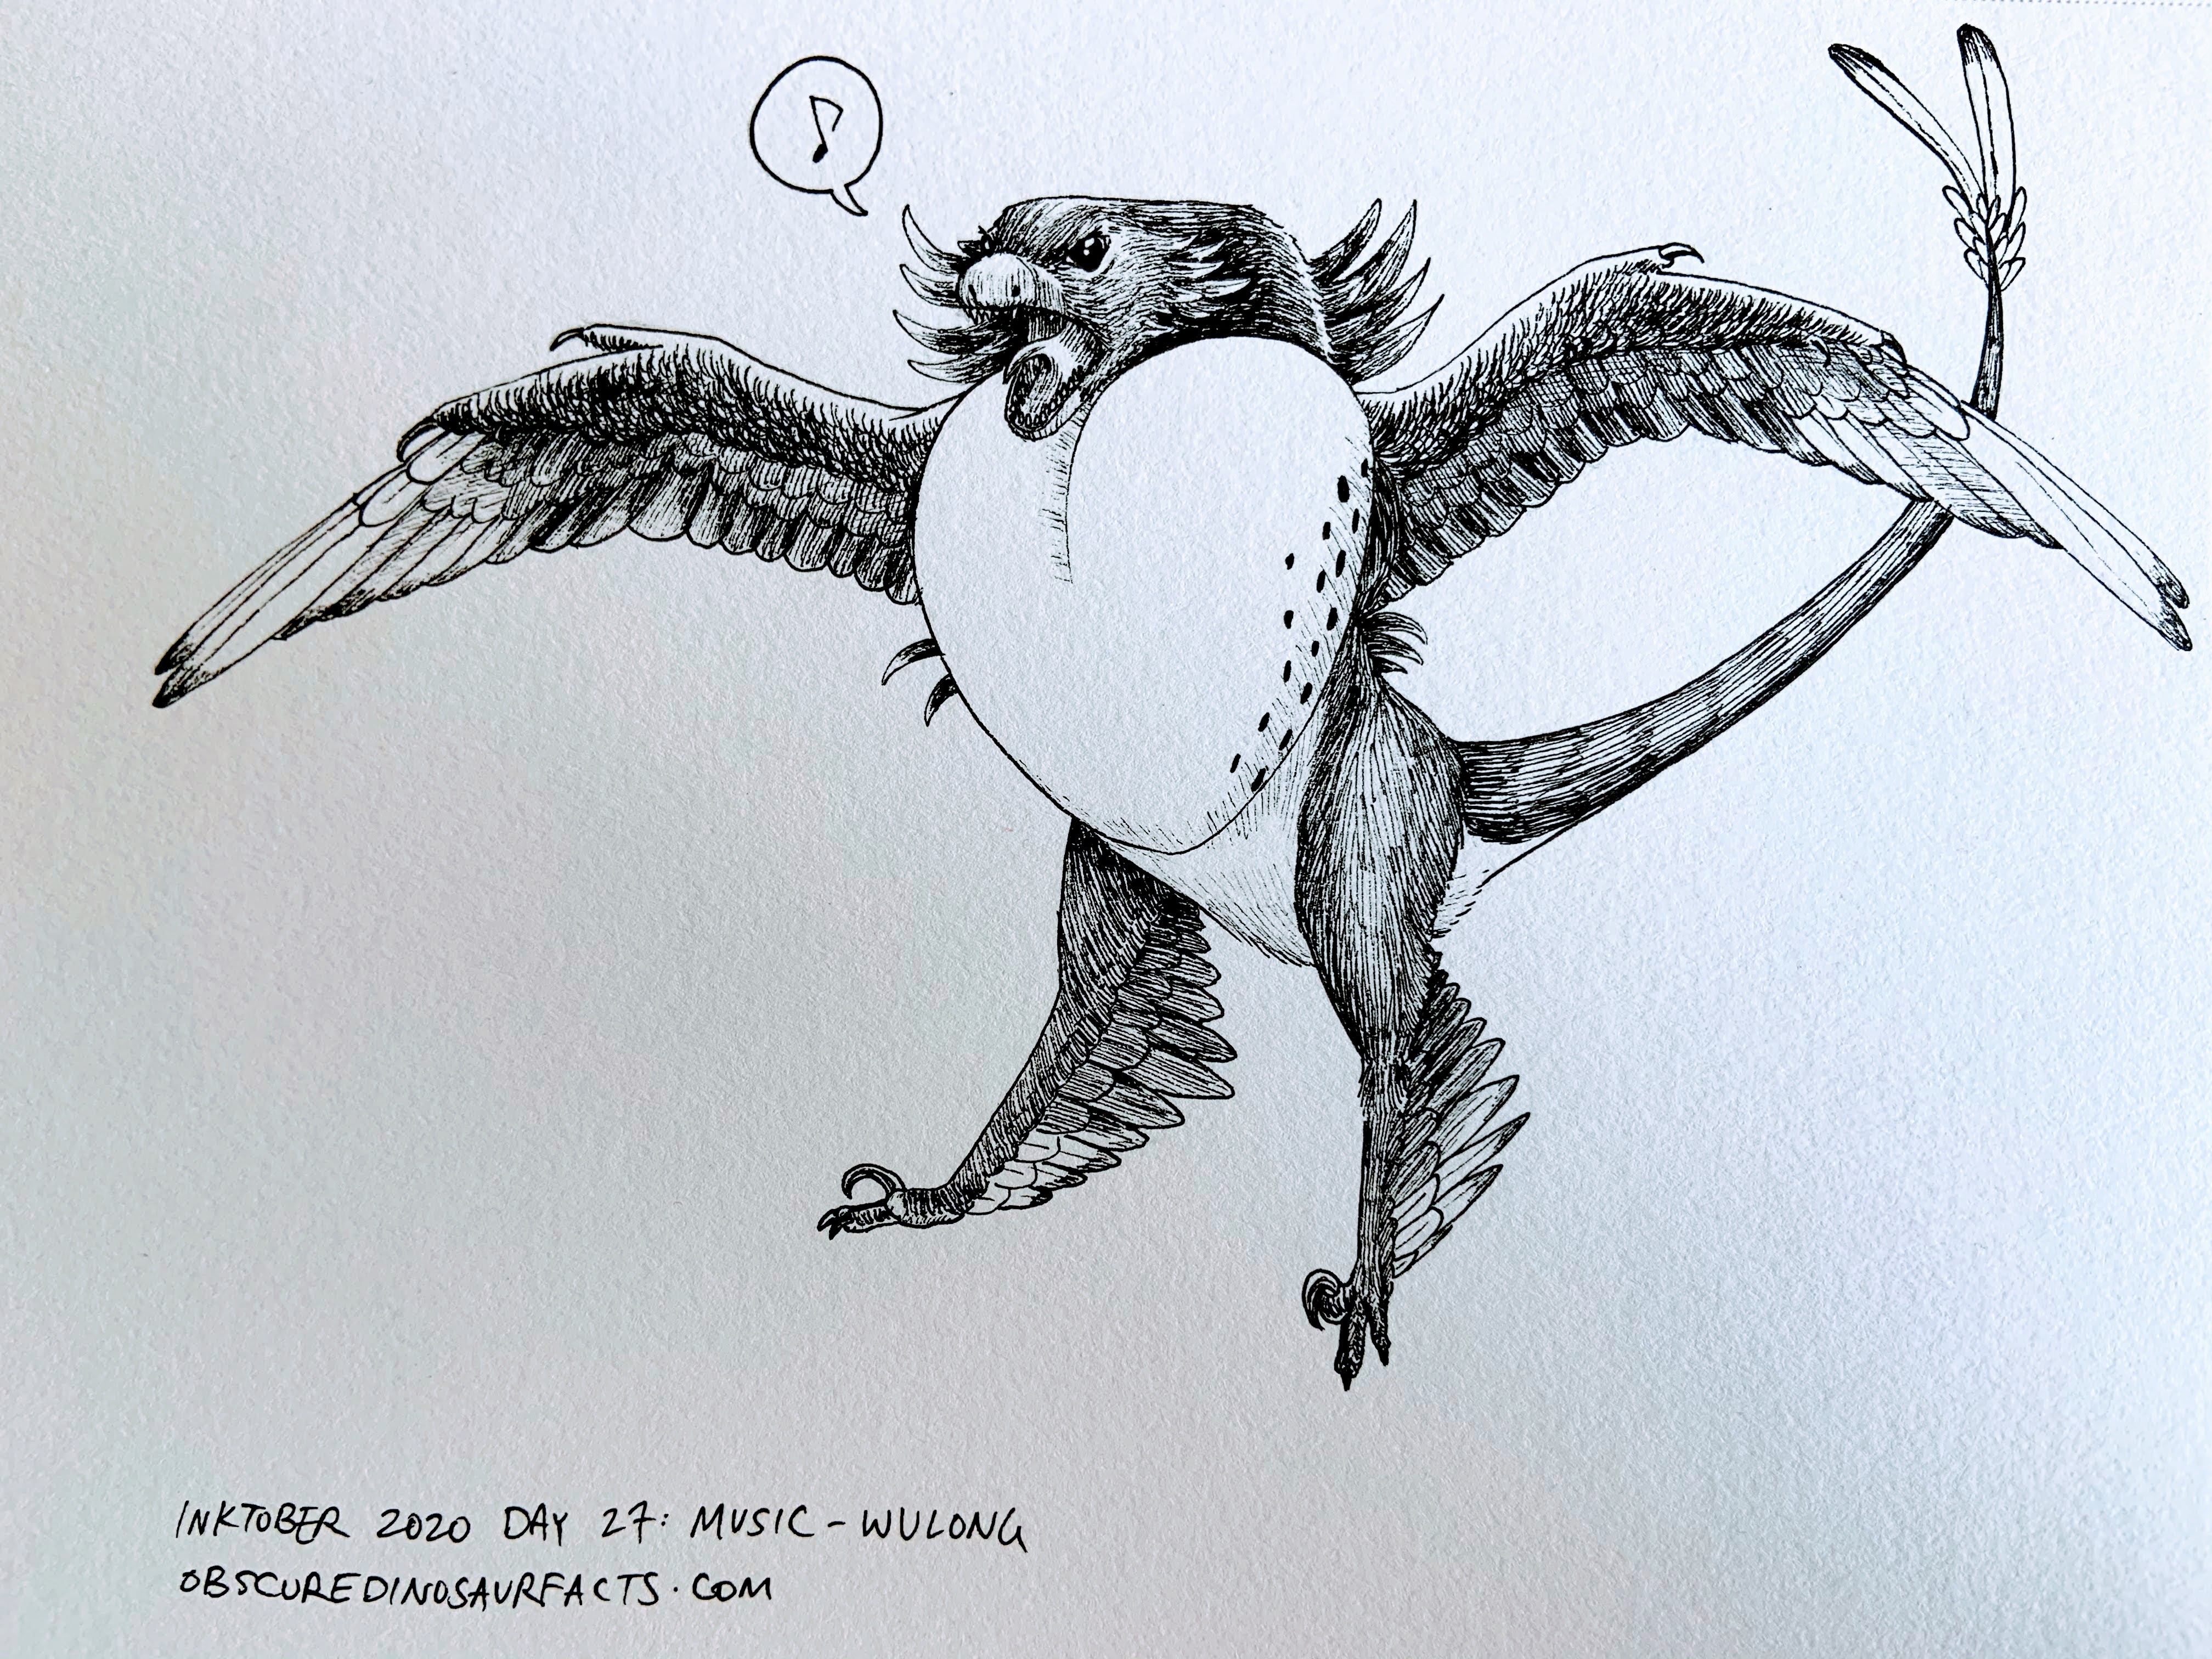 INKTOBER 2020 DAY 27: MUSIC - WULONG
OBSCUREDINOSAURFACTS.COM